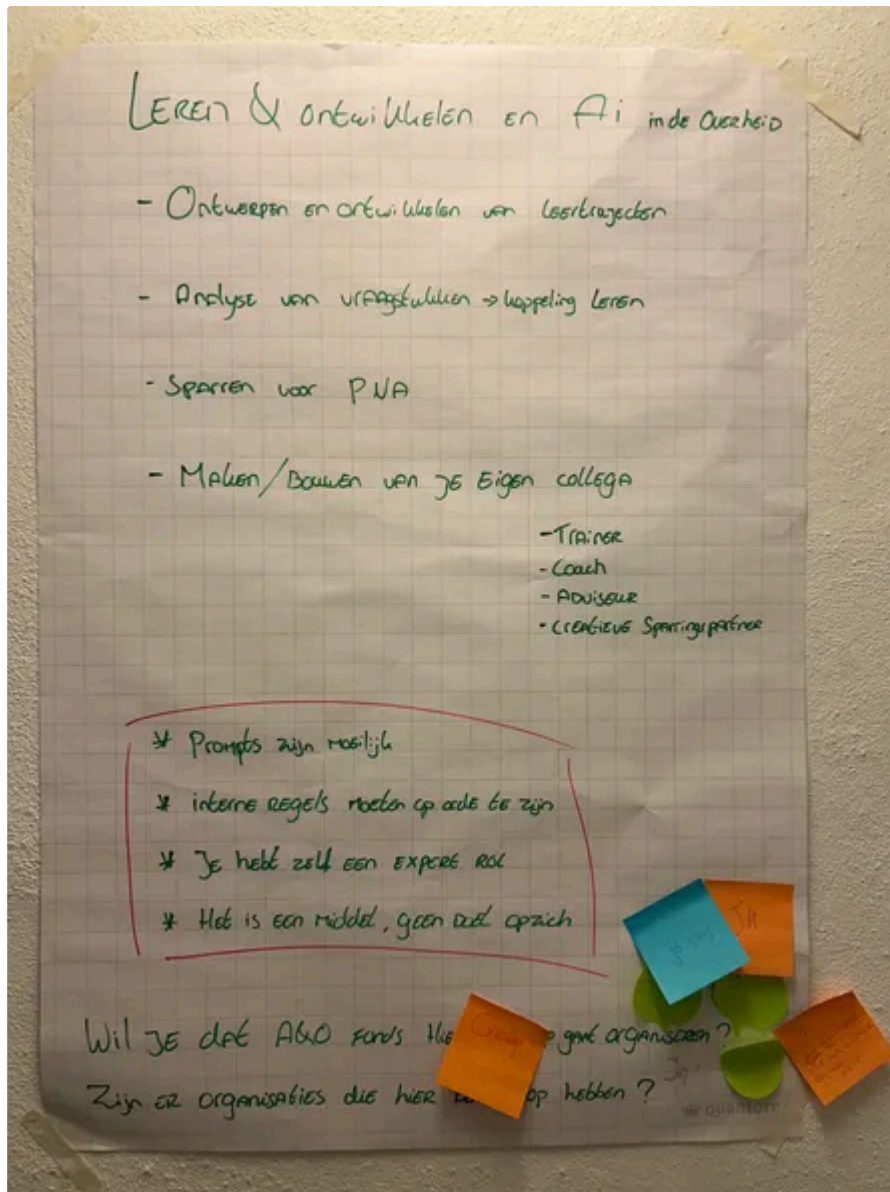 LEREN & ontwikkelen en Ai in de Overheid
- Ontwerpen en ontwikkelen van leertrajecten
- Analyse van vraagstukken → koppeling Leren
- Sparren voor PVA
- Maken/Bouwen van je Eigen collega
- Trainer
- Coach
- Adviseur
- Creatieve Sparringspartner
* Prompts zijn moeilijk
* interne regels moeten op orde te zijn
* Je hebt zelf een expert rol
* Het is een middel, geen doel opzich
Wil je dat A&O fonds gaat organiseren?
Zijn er organisaties die hier op hebben?
quantore